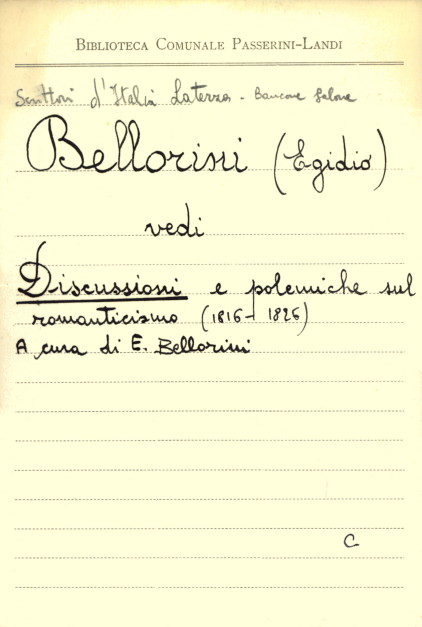 BIBLIOTECA COMUNALE PASSERINI-LANDI
Scrittori d'Italia Laterza - Bancone Salone
Bellorini (Egidio)
vedi
Discussioni e polemiche sul
romanticismo (1816-1826)
A cura di E. Bellorini
C